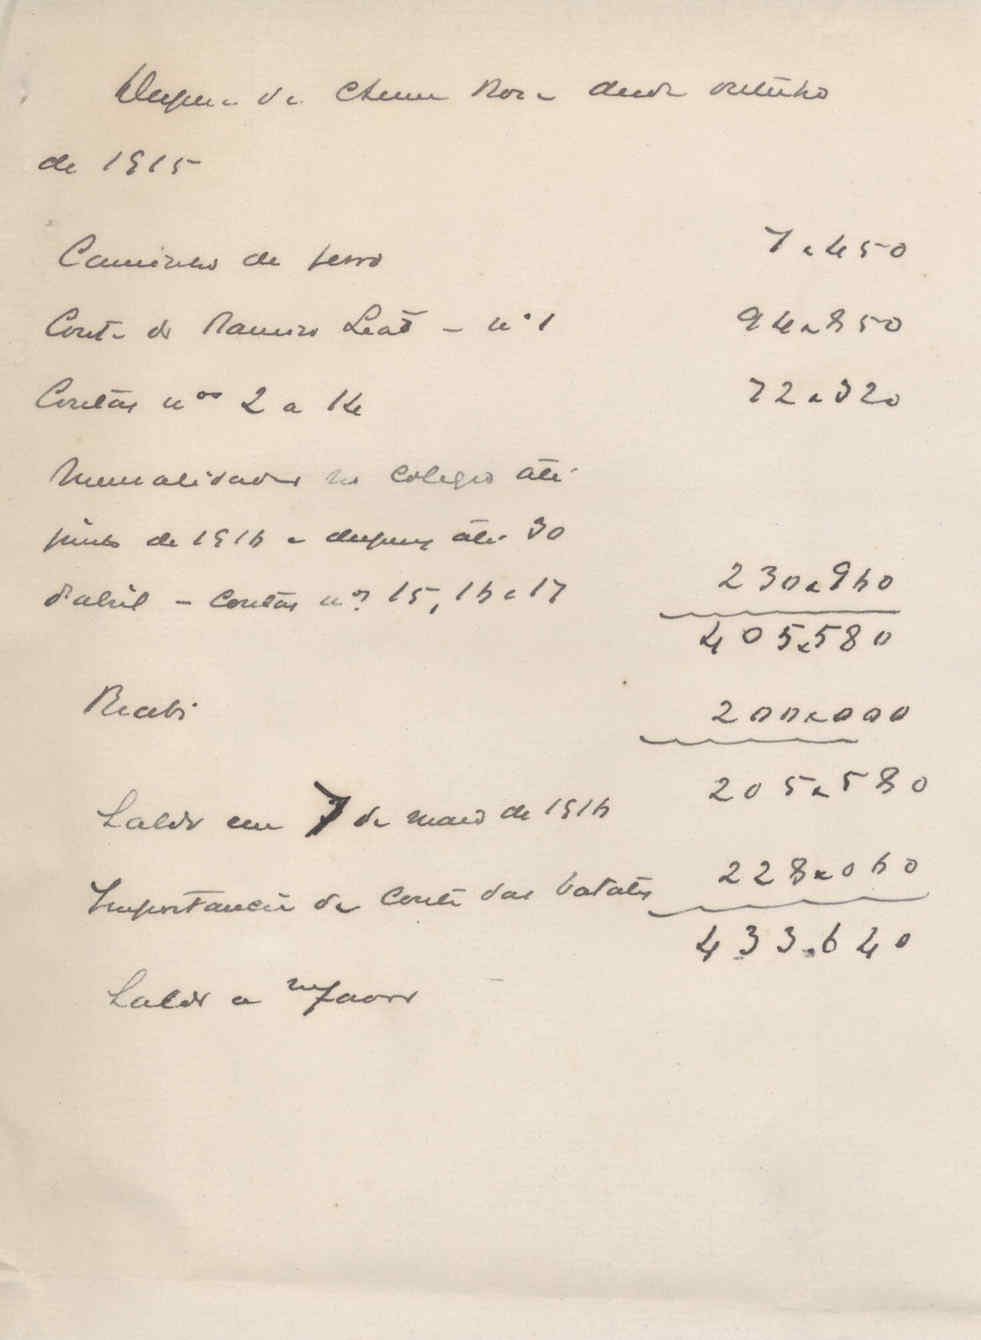 Despesa da Chema Rosa desde outubro
de 1915
Caminho de ferro 7.450
Conta do Ramiro Leão - nº 1 94.850
Contas nos 2 a 14 72.320
Mensalidades no colegio até
junho de 1916 e despezas até 30
d'abril - contas nos 15, 16 e 17 230.960
405.580
Recebi 200.000
205.580
Saldo em 7 de maio de 1916
Importancia da conta das batatas 228.060
433.640
Saldo a m/favor